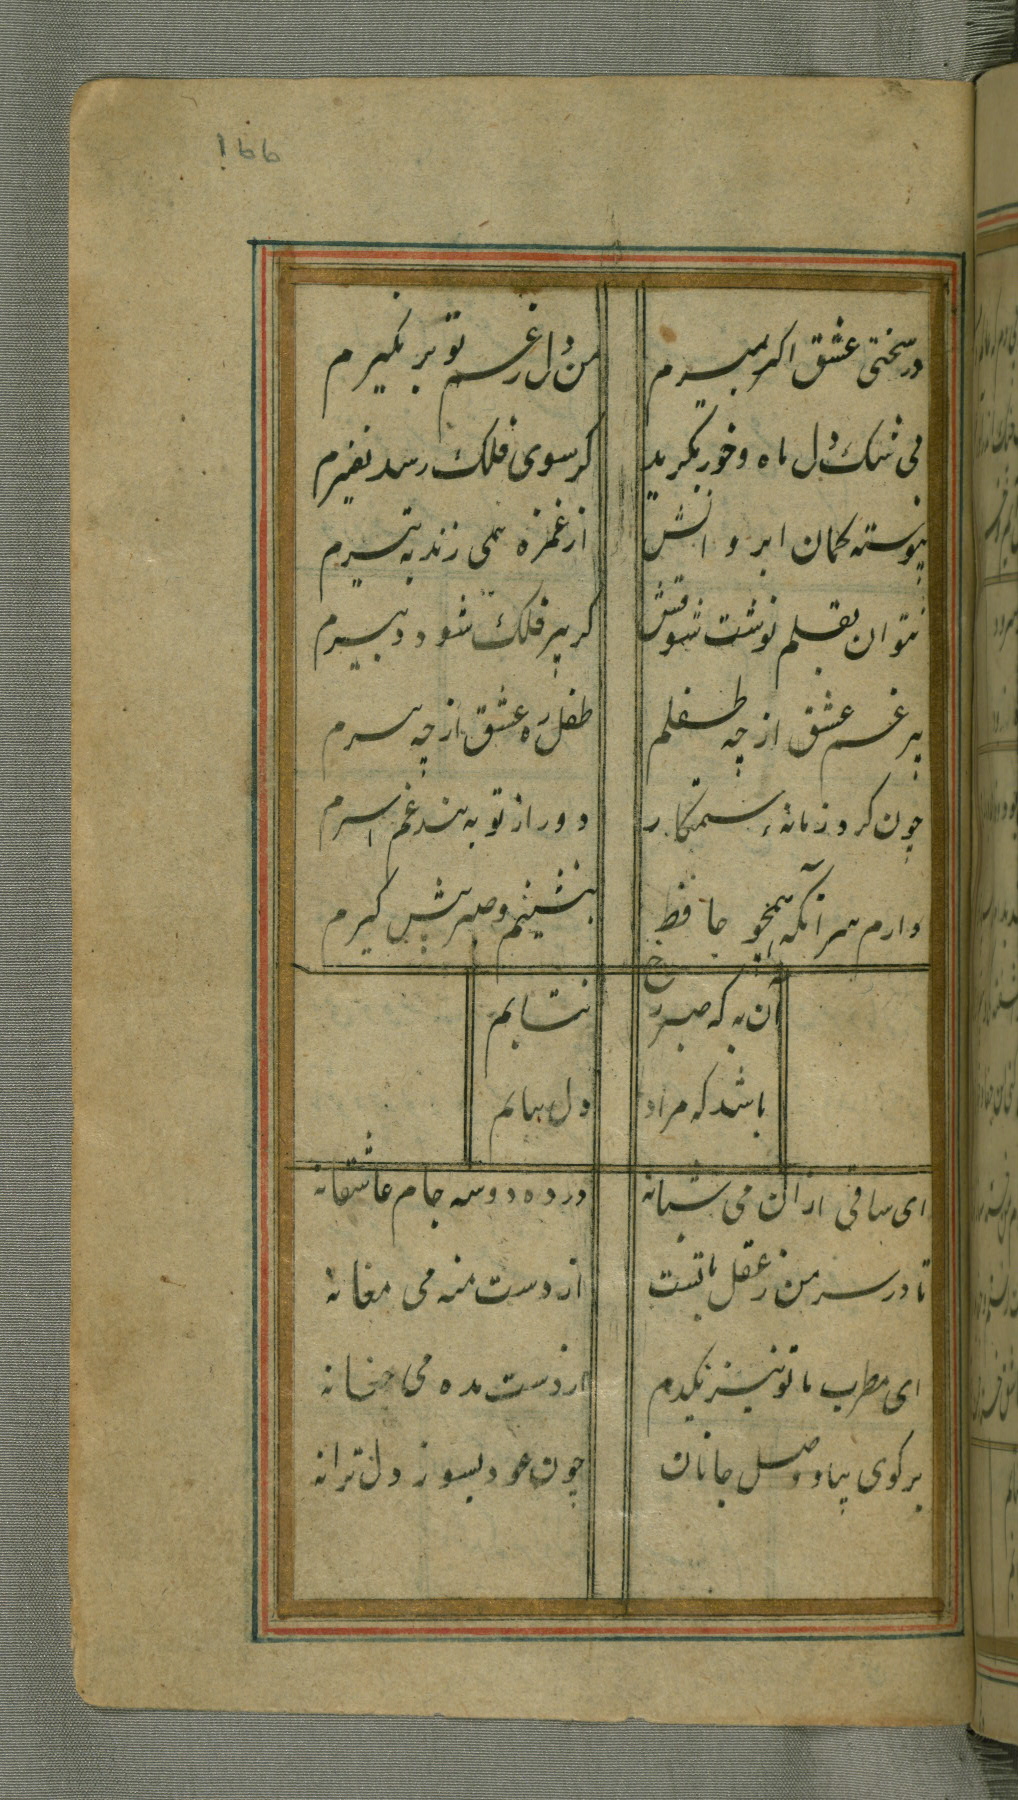 ۱۶۶
در سختی عشق اگر بمیرم من دل ز غم تو بر نگیرم
بی شک دل ماه و خور بگرید گر سوی فلک رسد نفیرم
پیوسته کمان ابروانش از غمزه همی زند به تیرم
نتوان بقلم نوشت شوقش گر پیر فلک شود دبیرم
پیر غم عشق از چه طفلم طفل ره عشق از چه پیرم
چون کرد زمانهٔ ستمکار دور از تو به بند غم اسیرم
دارم سر آنکه همچو حافظ بنشینم و صبر پیش گیرم
آن به که ز صبر رخ نتابم
باشد که مراد دل بیابم
ای ساقی ازان می شبانه در ده دو سه جام عاشقانه
تا در سر من ز عقل باقیست از دست منه می مغانه
ای مطرب ما تو نیز یکدم از دست مده می چغانه
بر کوی بیاد وصل جانان چون عود بسوز دل ترانه